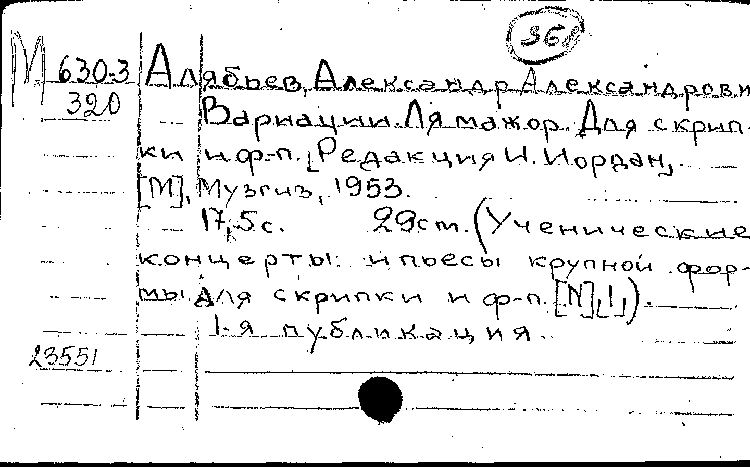 368
М 630-3 Алябьев, Александр Александрови
320 Вариации. Ля мажор. Для скрип-
ки и ф-п. [Редакция И. Иордан],
[М], Музгиз, 1953.
17,5 с. 29 см. (Ученические
концерты и пьесы крупной фор-
мы для скрипки и ф-п. [N], 1,).
1-я публикация.
23551